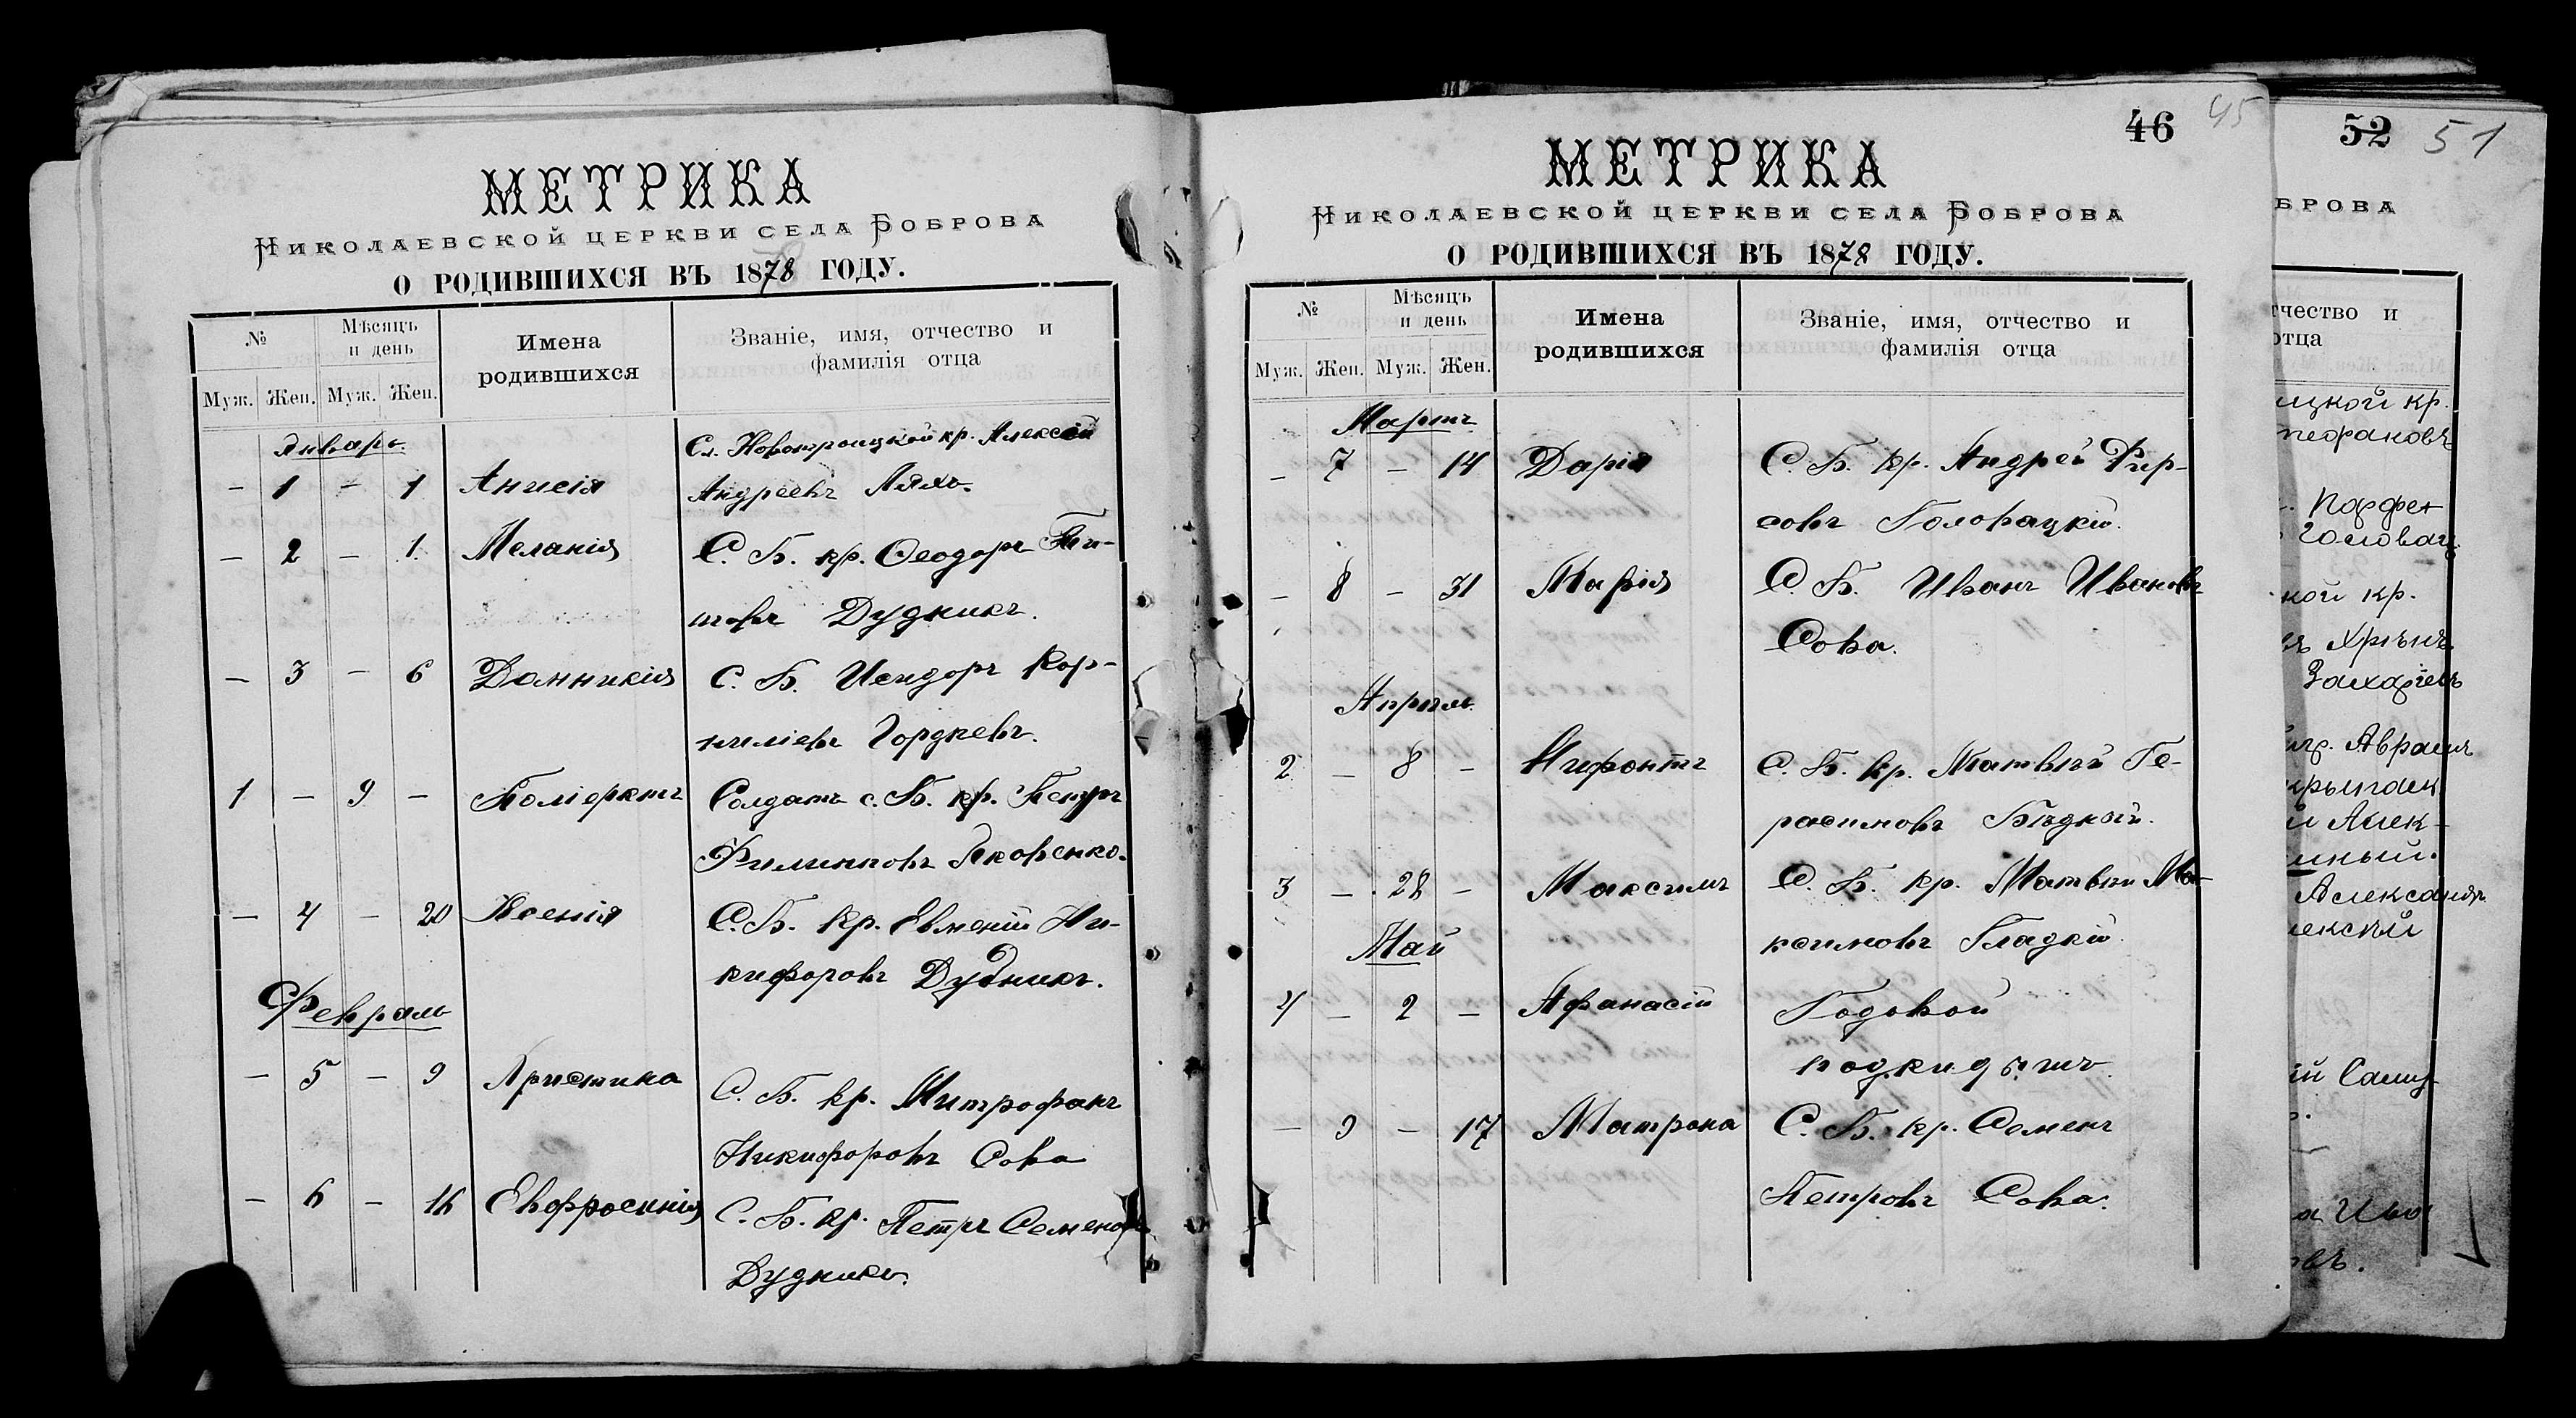 МЕТРИКА
Николаевской церкви села Боброва
О РОДИВШИХСЯ ВЪ 1878 ГОДУ.
№
Мѣсяцъ и день
Имена родившихся
Званіе, имя, отчество и фамилія отца
Муж. Жен. Муж. Жен.
Январь
Сл. Новотроицкой кр. Алексѣй
— 1 — 1 Анисія Андреевъ Ляхъ.
— 2 — 1. Меланія С. Б. кр. Ѳеодоръ Ти-
товъ Дудникъ.
— 3 — 6 Домникія С. Б. Исидоръ Кор-
ниліевъ Гордіевъ.
1 — 9 — Поліерктъ Солдатъ с. Б. кр. Петръ
Филипповъ Яковенко.
— 4 — 20 Ксенія С. Б. кр. Евменій Ни-
кифоровъ Дудникъ.
Февраль
— 5 — 9 Христина С. Б. кр. Митрофанъ
Никифоровъ Сова
— 6 — 16 Евфросинія С. Б. кр. Петръ Семеновъ
Дудникъ.
46 45
МЕТРИКА
Николаевской церкви села Боброва
О РОДИВШИХСЯ ВЪ 1878 ГОДУ.
№
Мѣсяцъ и день
Имена родившихся
Званіе, имя, отчество и фамилія отца
Муж. Жен. Муж. Жен.
Мартъ
— 7 — 14 Дарія С. Б. кр. Андрей Фир-
совъ Головацкій.
— 8 — 31 Марія С. Б. Иванъ Ивановъ
Сова.
Апрѣль
2 — 8 — Нифонтъ С. Б. кр. Матвѣй Ге-
расимовъ Бѣдный.
3 — 28 — Максимъ С. Б. кр. Матвѣй Ма-
ксимовъ Гладкій.
Май
4 — 2 — Афанасій Годовой
подкидышъ
— 9 — 17 Матрона С. Б. кр. Семенъ
Петровъ Сова.
52 51
БРОВА
чество и
отца
ицкой кр.
тефановъ
Парфен
Головац
кой кр.
Хрѣнъ
Захаріевъ
Аврамъ
Алек-
Александръ
Саму